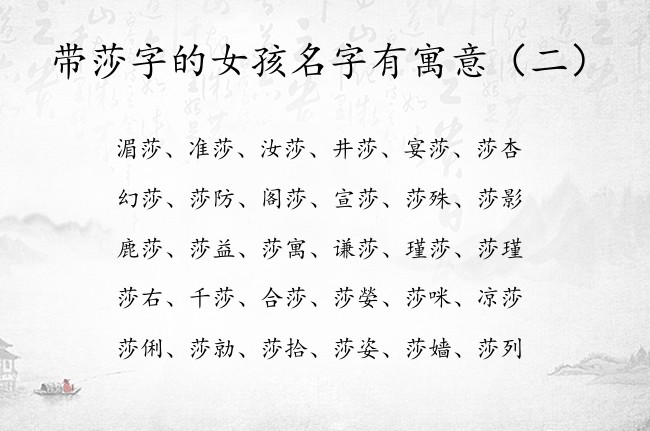 带莎字的女孩名字有寓意（二）
湄莎、准莎、汝莎、井莎、宴莎、莎杏
幻莎、莎防、阁莎、宣莎、莎殊、莎影
鹿莎、莎益、莎寓、谦莎、瑾莎、莎瑾
莎右、千莎、合莎、莎嫈、莎咪、凉莎
莎俐、莎勍、莎拾、莎姿、莎嫱、莎列